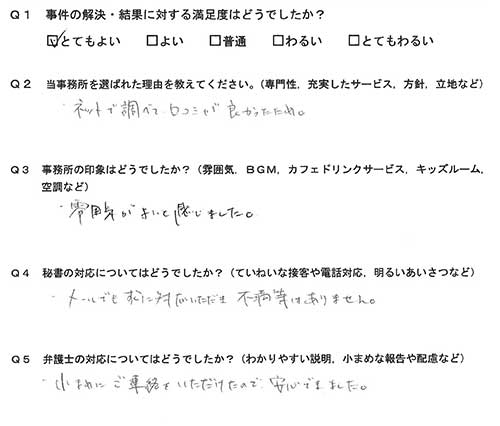 Q1 事件の解決・結果に対する満足度はどうでしたか？
☑とてもよい □よい □普通 □わるい □とてもわるい
Q2 当事務所を選ばれた理由を教えてください。（専門性，充実したサービス，方針，立地など）
・ネットで調べて、口コミが良かったため。
Q3 事務所の印象はどうでしたか？（雰囲気，BGM，カフェドリンクサービス，キッズルーム，
空調など）
・雰囲気がよいと感じました。
Q4 秘書の対応についてはどうでしたか？（ていねいな接客や電話対応，明るいあいさつなど）
・メールでもすぐに対応いただき 不満等はありません。
Q5 弁護士の対応についてはどうでしたか？（わかりやすい説明，小まめな報告や配慮など）
・小まめにご連絡をいただけたので、安心できました。